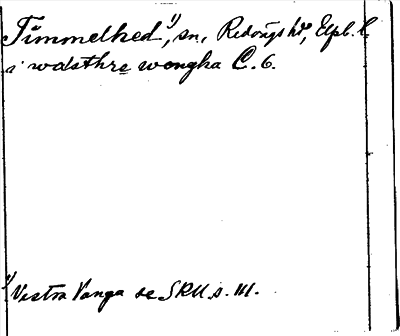 Timmelhed¹⁾, sn, Redvägs hd, Elfsb. l.
i walsthre wongha C. 6.
¹⁾ Vestra Vånga se SRU s. 111.